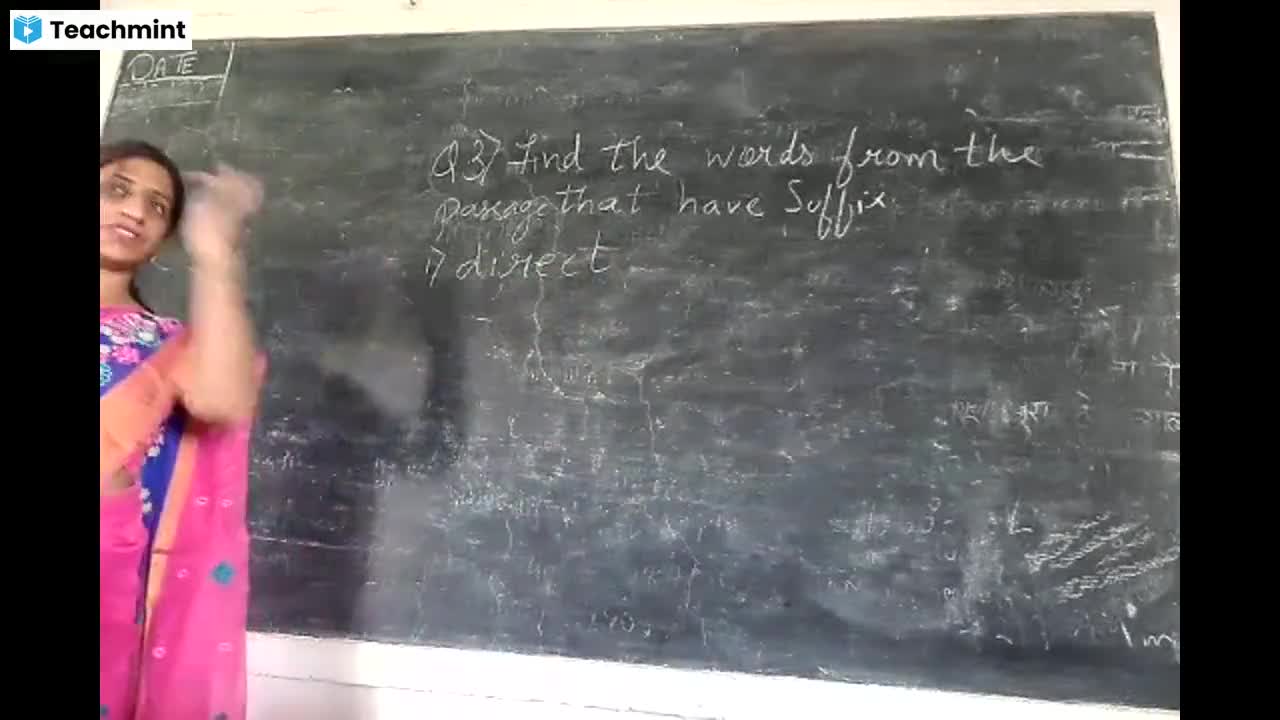 Teachmint
DATE
Q3) find the words from the
passage that have Suffix
1) direct